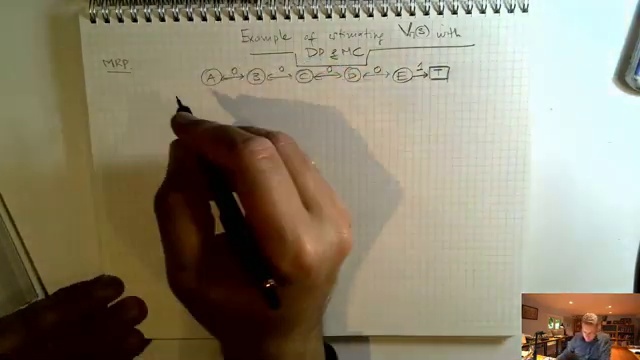 Example of estimating Vπ(s) with
DP & MC
MRP
A 0 B 0 C 0 D 0 E 1 T